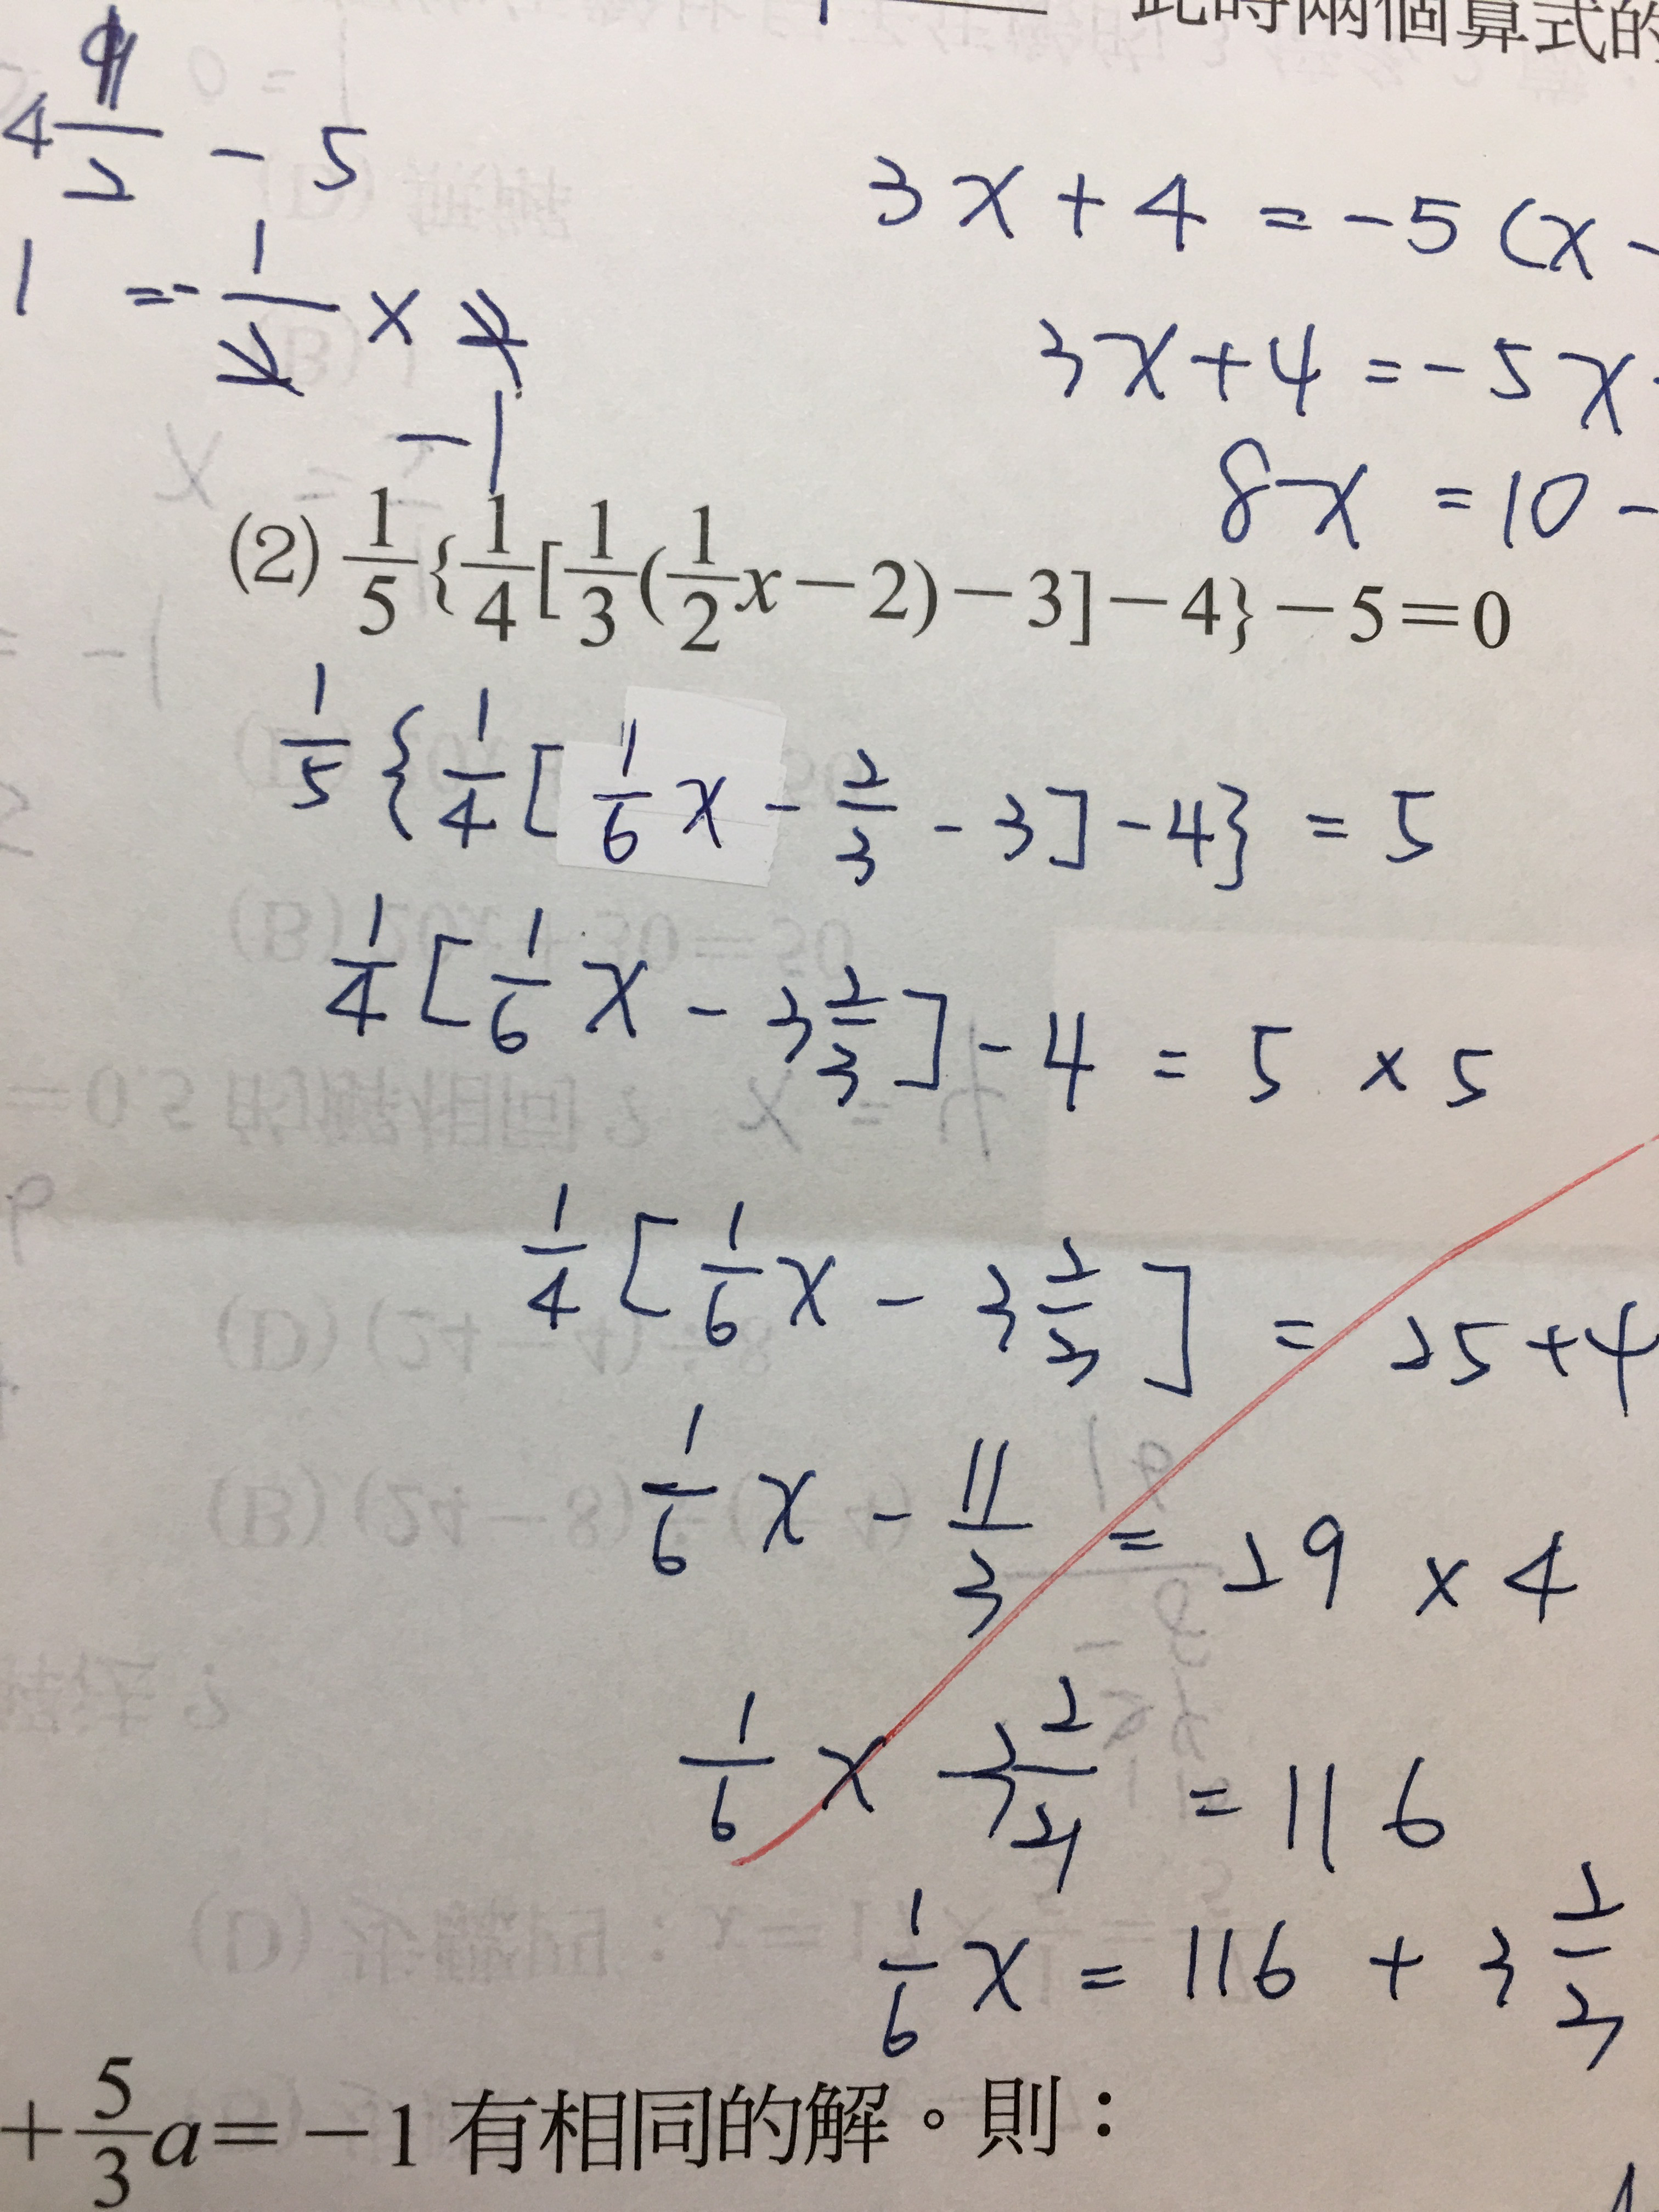 此時兩個算式的
4 1/2 - 5
3x + 4 = -5(x -
1 = - 1/2 × 4
3x + 4 = -5x
-1
8x = 10 -
(2) 1/5{1/4[1/3(1/2x-2)-3]-4}-5=0
1/5{1/4[1/6x - 2/3 - 3] - 4} = 5
1/4[1/6x - 3 2/3] - 4 = 5 × 5
1/4[1/6x - 3 2/3] = 25 + 4
1/6x - 11/3 = 29 × 4
1/6x - 3 2/3 = 116
1/6x = 116 + 3 2/3
+5/3a=-1 有相同的解。則：